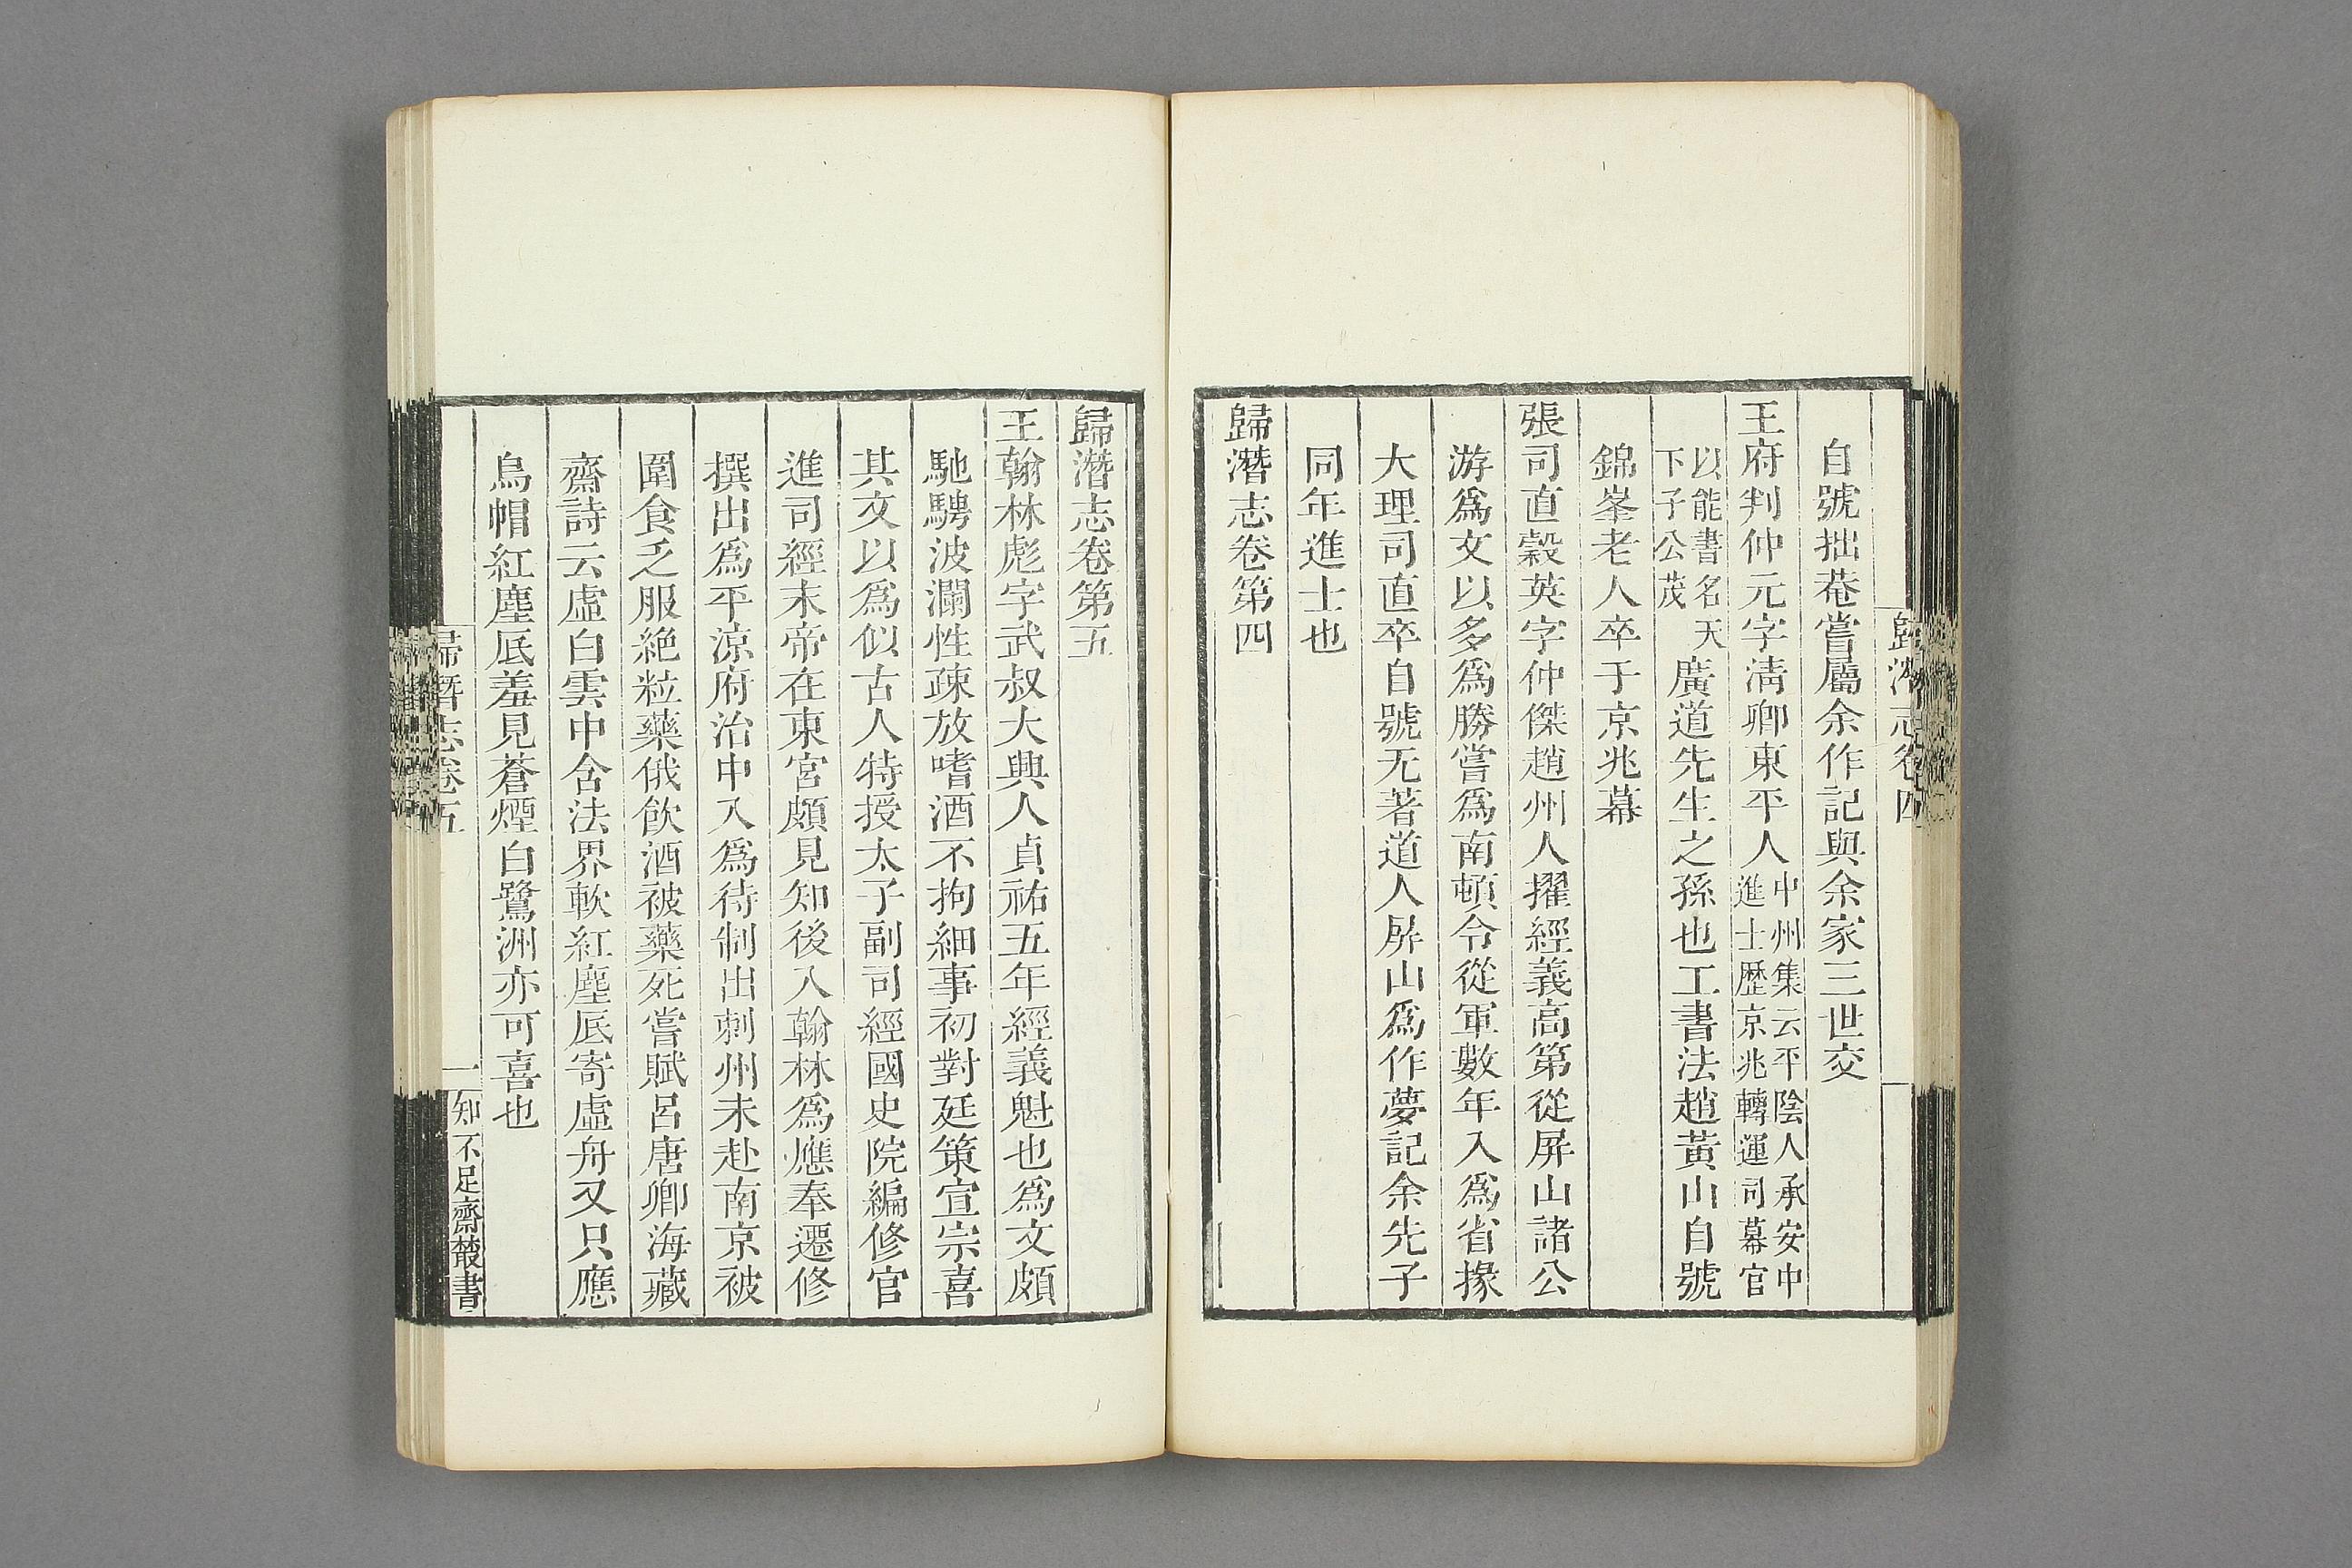 歸潛志卷四
自號拙菴嘗屬余作記與余家三世交
王府判仲元字清卿東平人中州集云平陰人承安中進士歷京兆轉運司幕官
以能書名天下子公茂廣道先生之孫也工書法趙黃山自號
錦峯老人卒于京兆幕
張司直糓英字仲傑趙州人擢經義高第從屏山諸公
游爲文以多爲勝嘗爲南頓令從軍數年入爲省掾
大理司直卒自號无著道人屏山爲作夢記余先子
同年進士也
歸潛志卷第四
歸潛志卷第五
王翰林彪字武叔大興人貞祐五年經義魁也爲文頗
馳騁波瀾性疎放嗜酒不拘細事初對廷策宣宗喜
其文以爲似古人特授太子副司經國史院編修官
進司經末帝在東宮頗見知後入翰林爲應奉遷修
撰出爲平涼府治中入爲待制出刺州未赴南京被
圍食乏服絕粒藥俄飲酒被藥死嘗賦呂唐卿海藏
齋詩云虛白雲中含法界軟紅塵底寄虛舟又只應
烏帽紅塵底羞見蒼煙白鷺洲亦可喜也
歸潛志卷五
一
知不足齋叢書